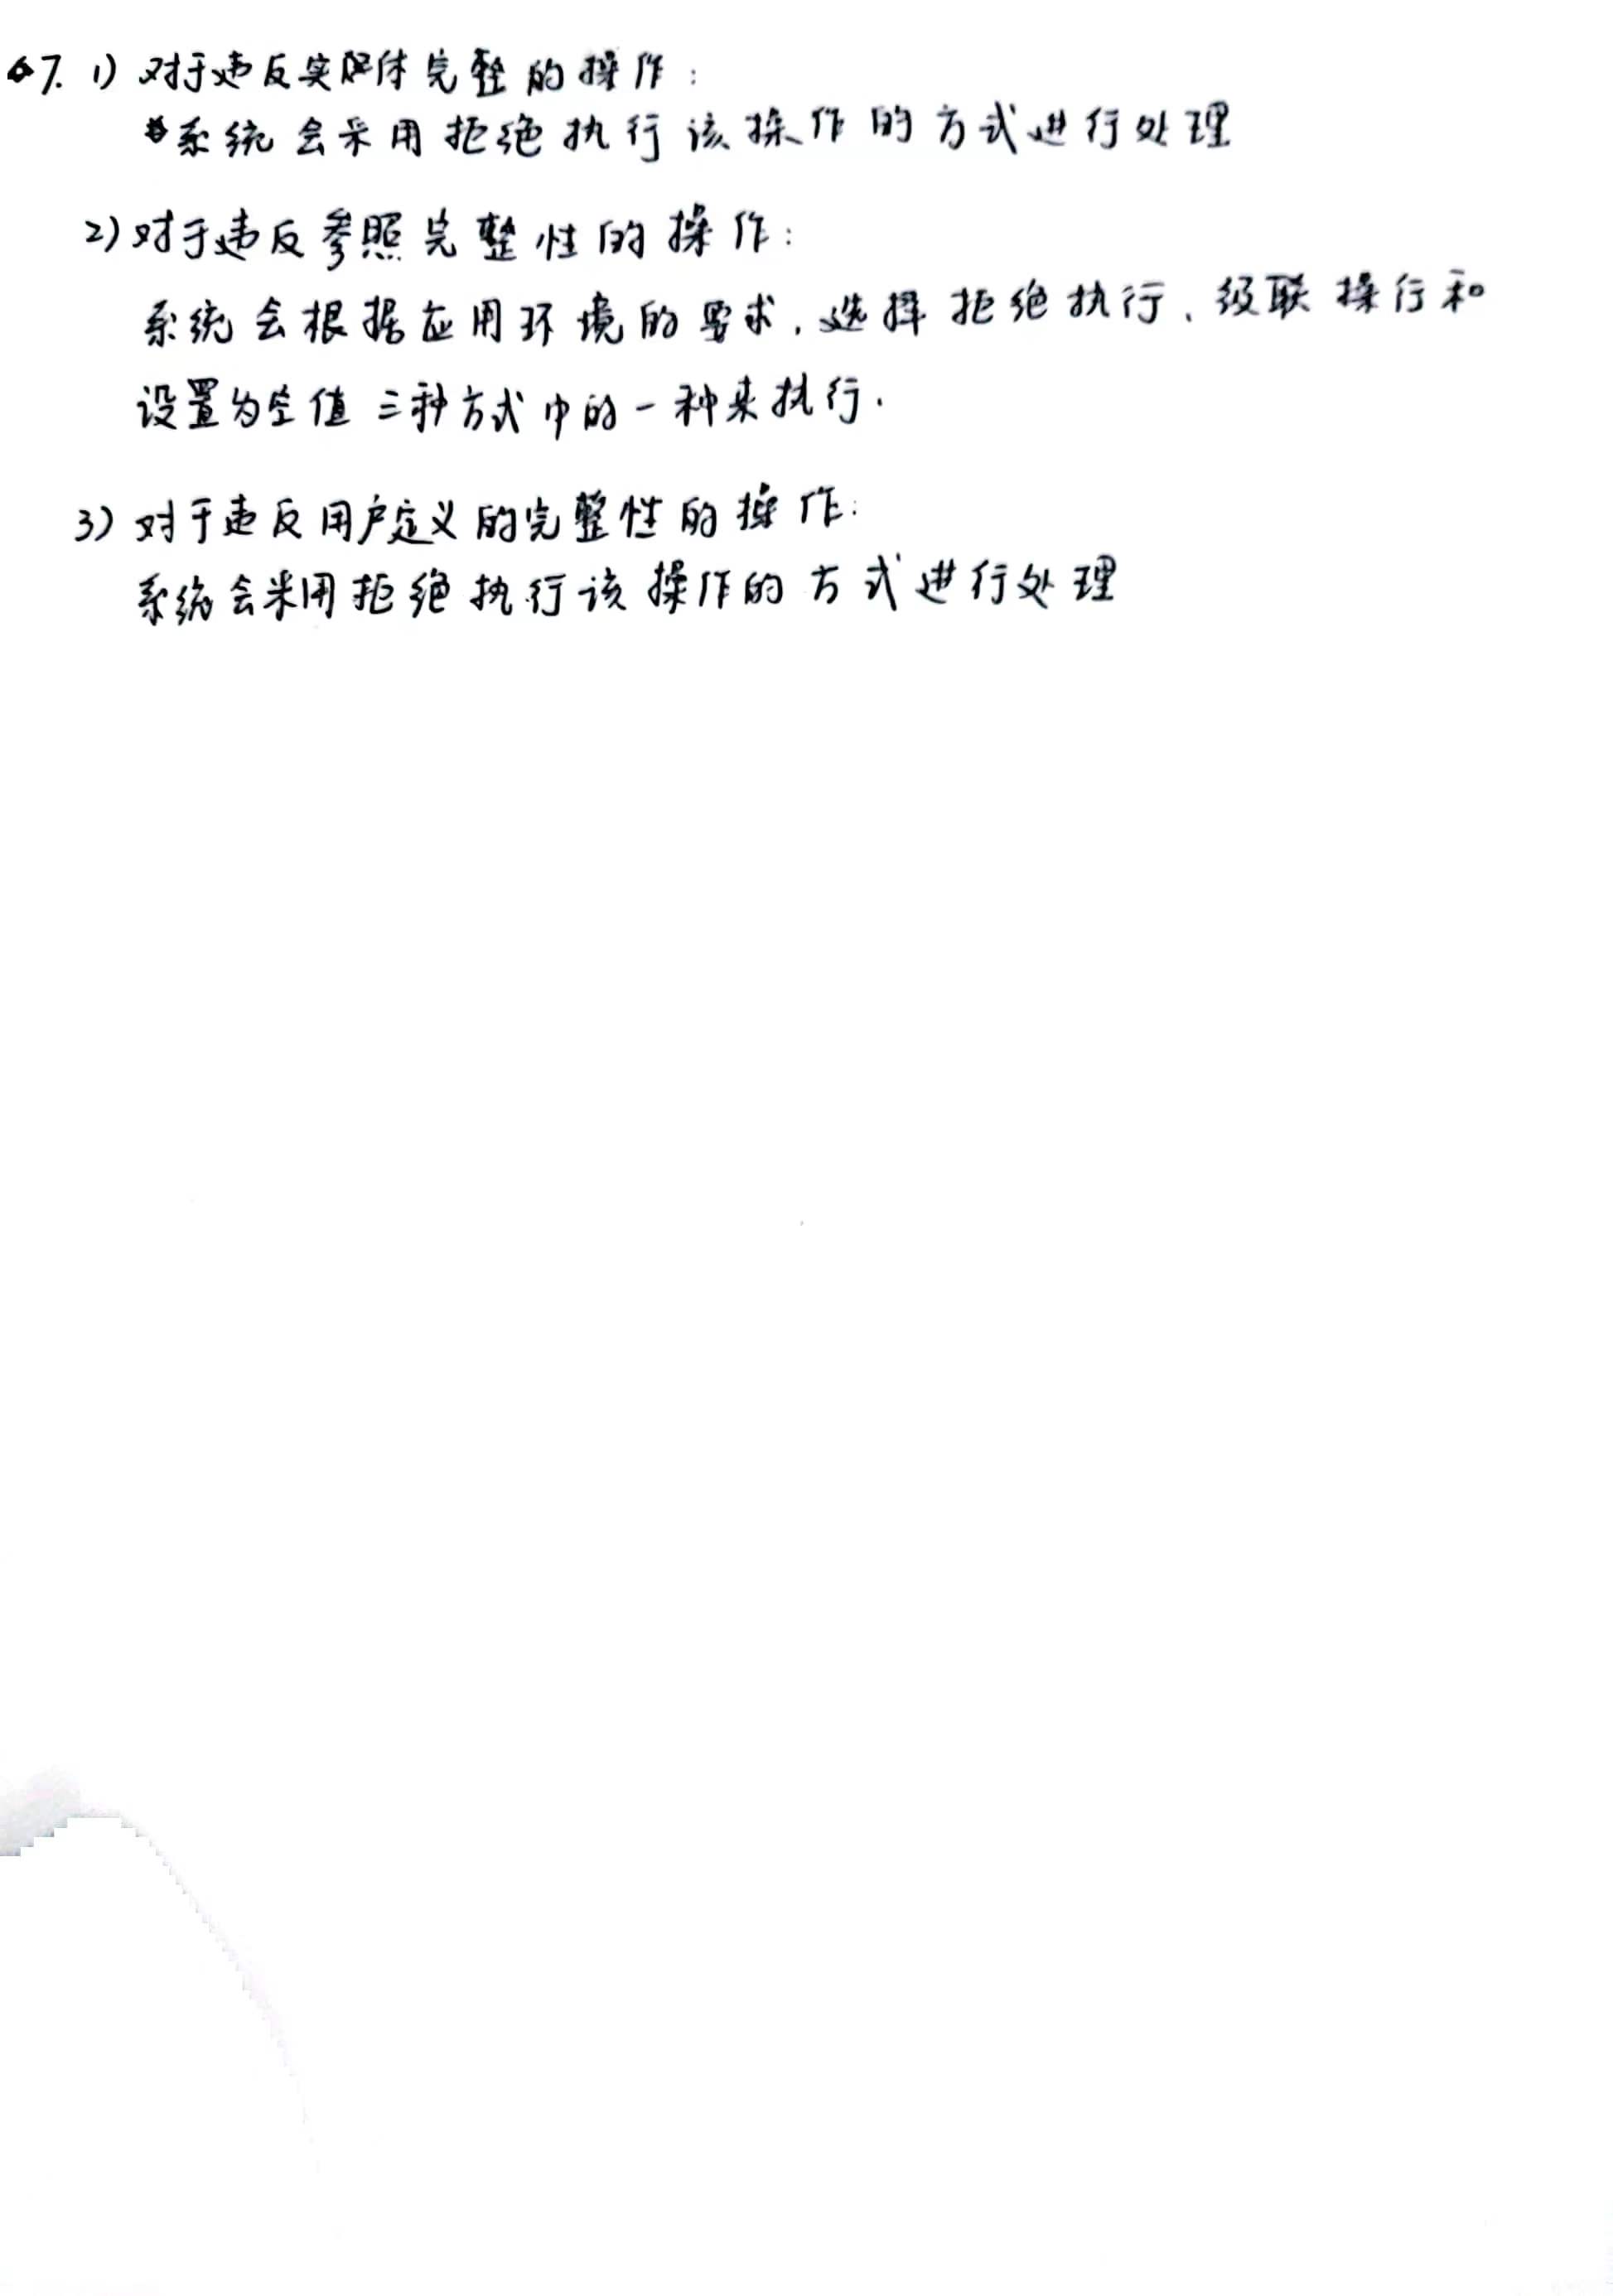 7. 1) 对于违反实体完整的操作:
系统会采用拒绝执行该操作的方式进行处理
2) 对于违反参照完整性的操作:
系统会根据应用环境的要求,选择拒绝执行、级联操行和
设置为空值三种方式中的一种来执行.
3) 对于违反用户定义的完整性的操作:
系统会采用拒绝执行该操作的方式进行处理